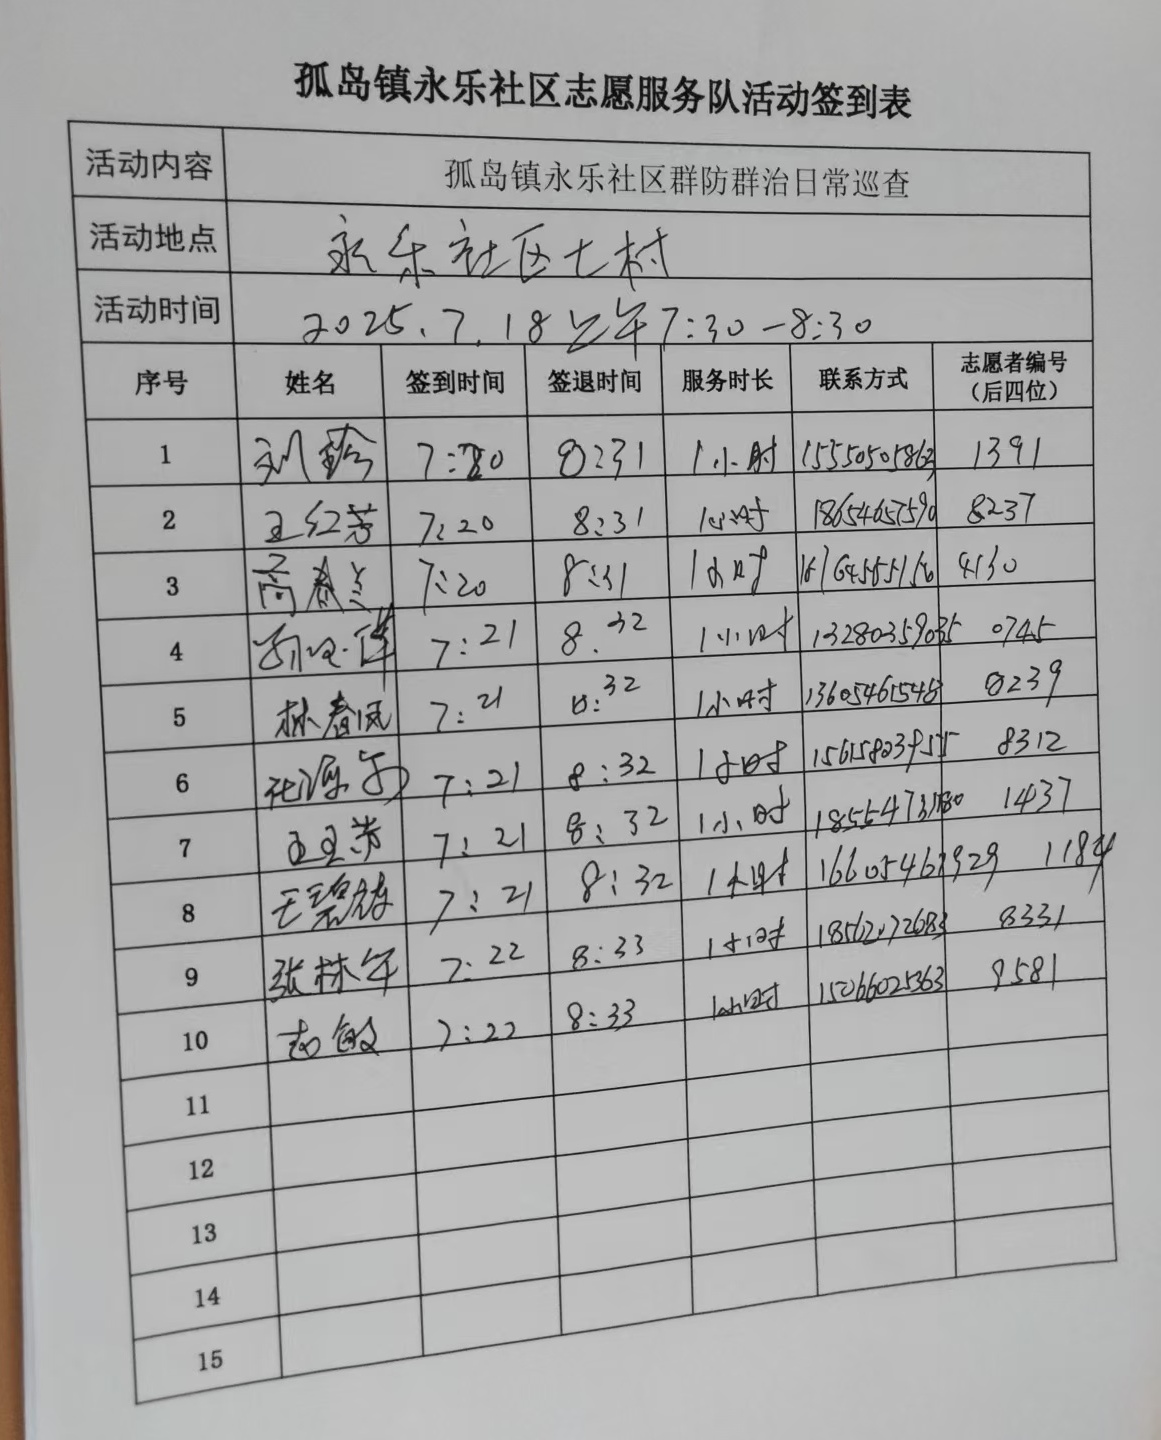 孤岛镇永乐社区志愿服务队活动签到表
活动内容 孤岛镇永乐社区群防群治日常巡查
活动地点 永乐社区七村
活动时间 2025.7.18上午7:30-8:30
序号 姓名 签到时间 签退时间 服务时长 联系方式 志愿者编号（后四位）
1 刘 7:20 8:31 1小时 15550505863 1391
2 王红芳 7:20 8:31 1小时 18654657590 8237
3 高春兰 7:20 8:31 1小时 4130
4 7:21 8.32 1小时 13280359035 0745
5 林春凤 7:21 8:32 1小时 13605461548 8239
6 7:21 8:32 1小时 15615823955 8312
7 王玉芳 7:21 8:32 1小时 1437
8 王碧 7:21 8:32 1小时 1184
9 张林年 7:22 8:33 1小时 18562072683 8331
10 敏 7:22 8:33 1小时 15066025363 9581
11
12
13
14
15